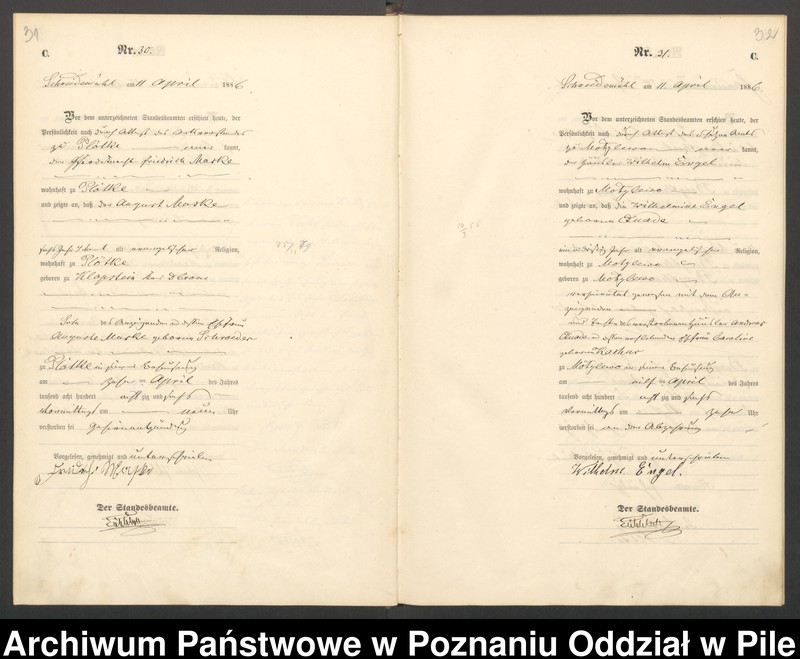 31
C.
Nr. 30.
Schneidemühl am 11 April 1886.
Vor dem unterzeichneten Standesbeamten erschien heute, der
Persönlichkeit nach durch Attest des Ortsvorstandes
zu Plöttke kannt,
der Pferdeknecht Friedrich Maske
wohnhaft zu Plöttke
und zeigte an, daß der August Maske
sechs Jahr alt evangelischer Religion,
wohnhaft zu Plöttke
geboren zu Klapstein
Sohn des Anzeigenden und dessen Ehefrau
Auguste Maske geborene Schroeder
zu Plöttke in seiner Behausung
am zehn ten April des Jahres
tausend acht hundert acht zig und sechs
Vormittags um neun Uhr
verstorben sei Gehirnentzündung
Vorgelesen, genehmigt und unterschrieben
Friedrich Maske
Der Standesbeamte.
32
C.
Nr. 31.
Schneidemühl am 11. April 1886.
Vor dem unterzeichneten Standesbeamten erschien heute, der
Persönlichkeit nach durch Attest des Schulzen Amts
zu Motylewo kannt,
der Häusler Wilhelm Engel
wohnhaft zu Motylewo
und zeigte an, daß die Wilhelmine Engel
geborene Quade
Jahr alt evangelischer Religion,
wohnhaft zu Motylewo
geboren zu Motylewo
verheiratet gewesen mit dem An-
zeigenden
und Tochter des verstorbenen Häusler Andreas
Quade und dessen verstorbenen Ehefrau Caroline
geborene
zu Motylewo in seiner Behausung
am elf ten April des Jahres
tausend acht hundert acht zig und sechs
Vormittags um zehn Uhr
verstorben sei an der Abzehrung
Vorgelesen, genehmigt und unterschrieben
Wilhelm Engel.
Der Standesbeamte.
Archiwum Państwowe w Poznaniu Oddział w Pile